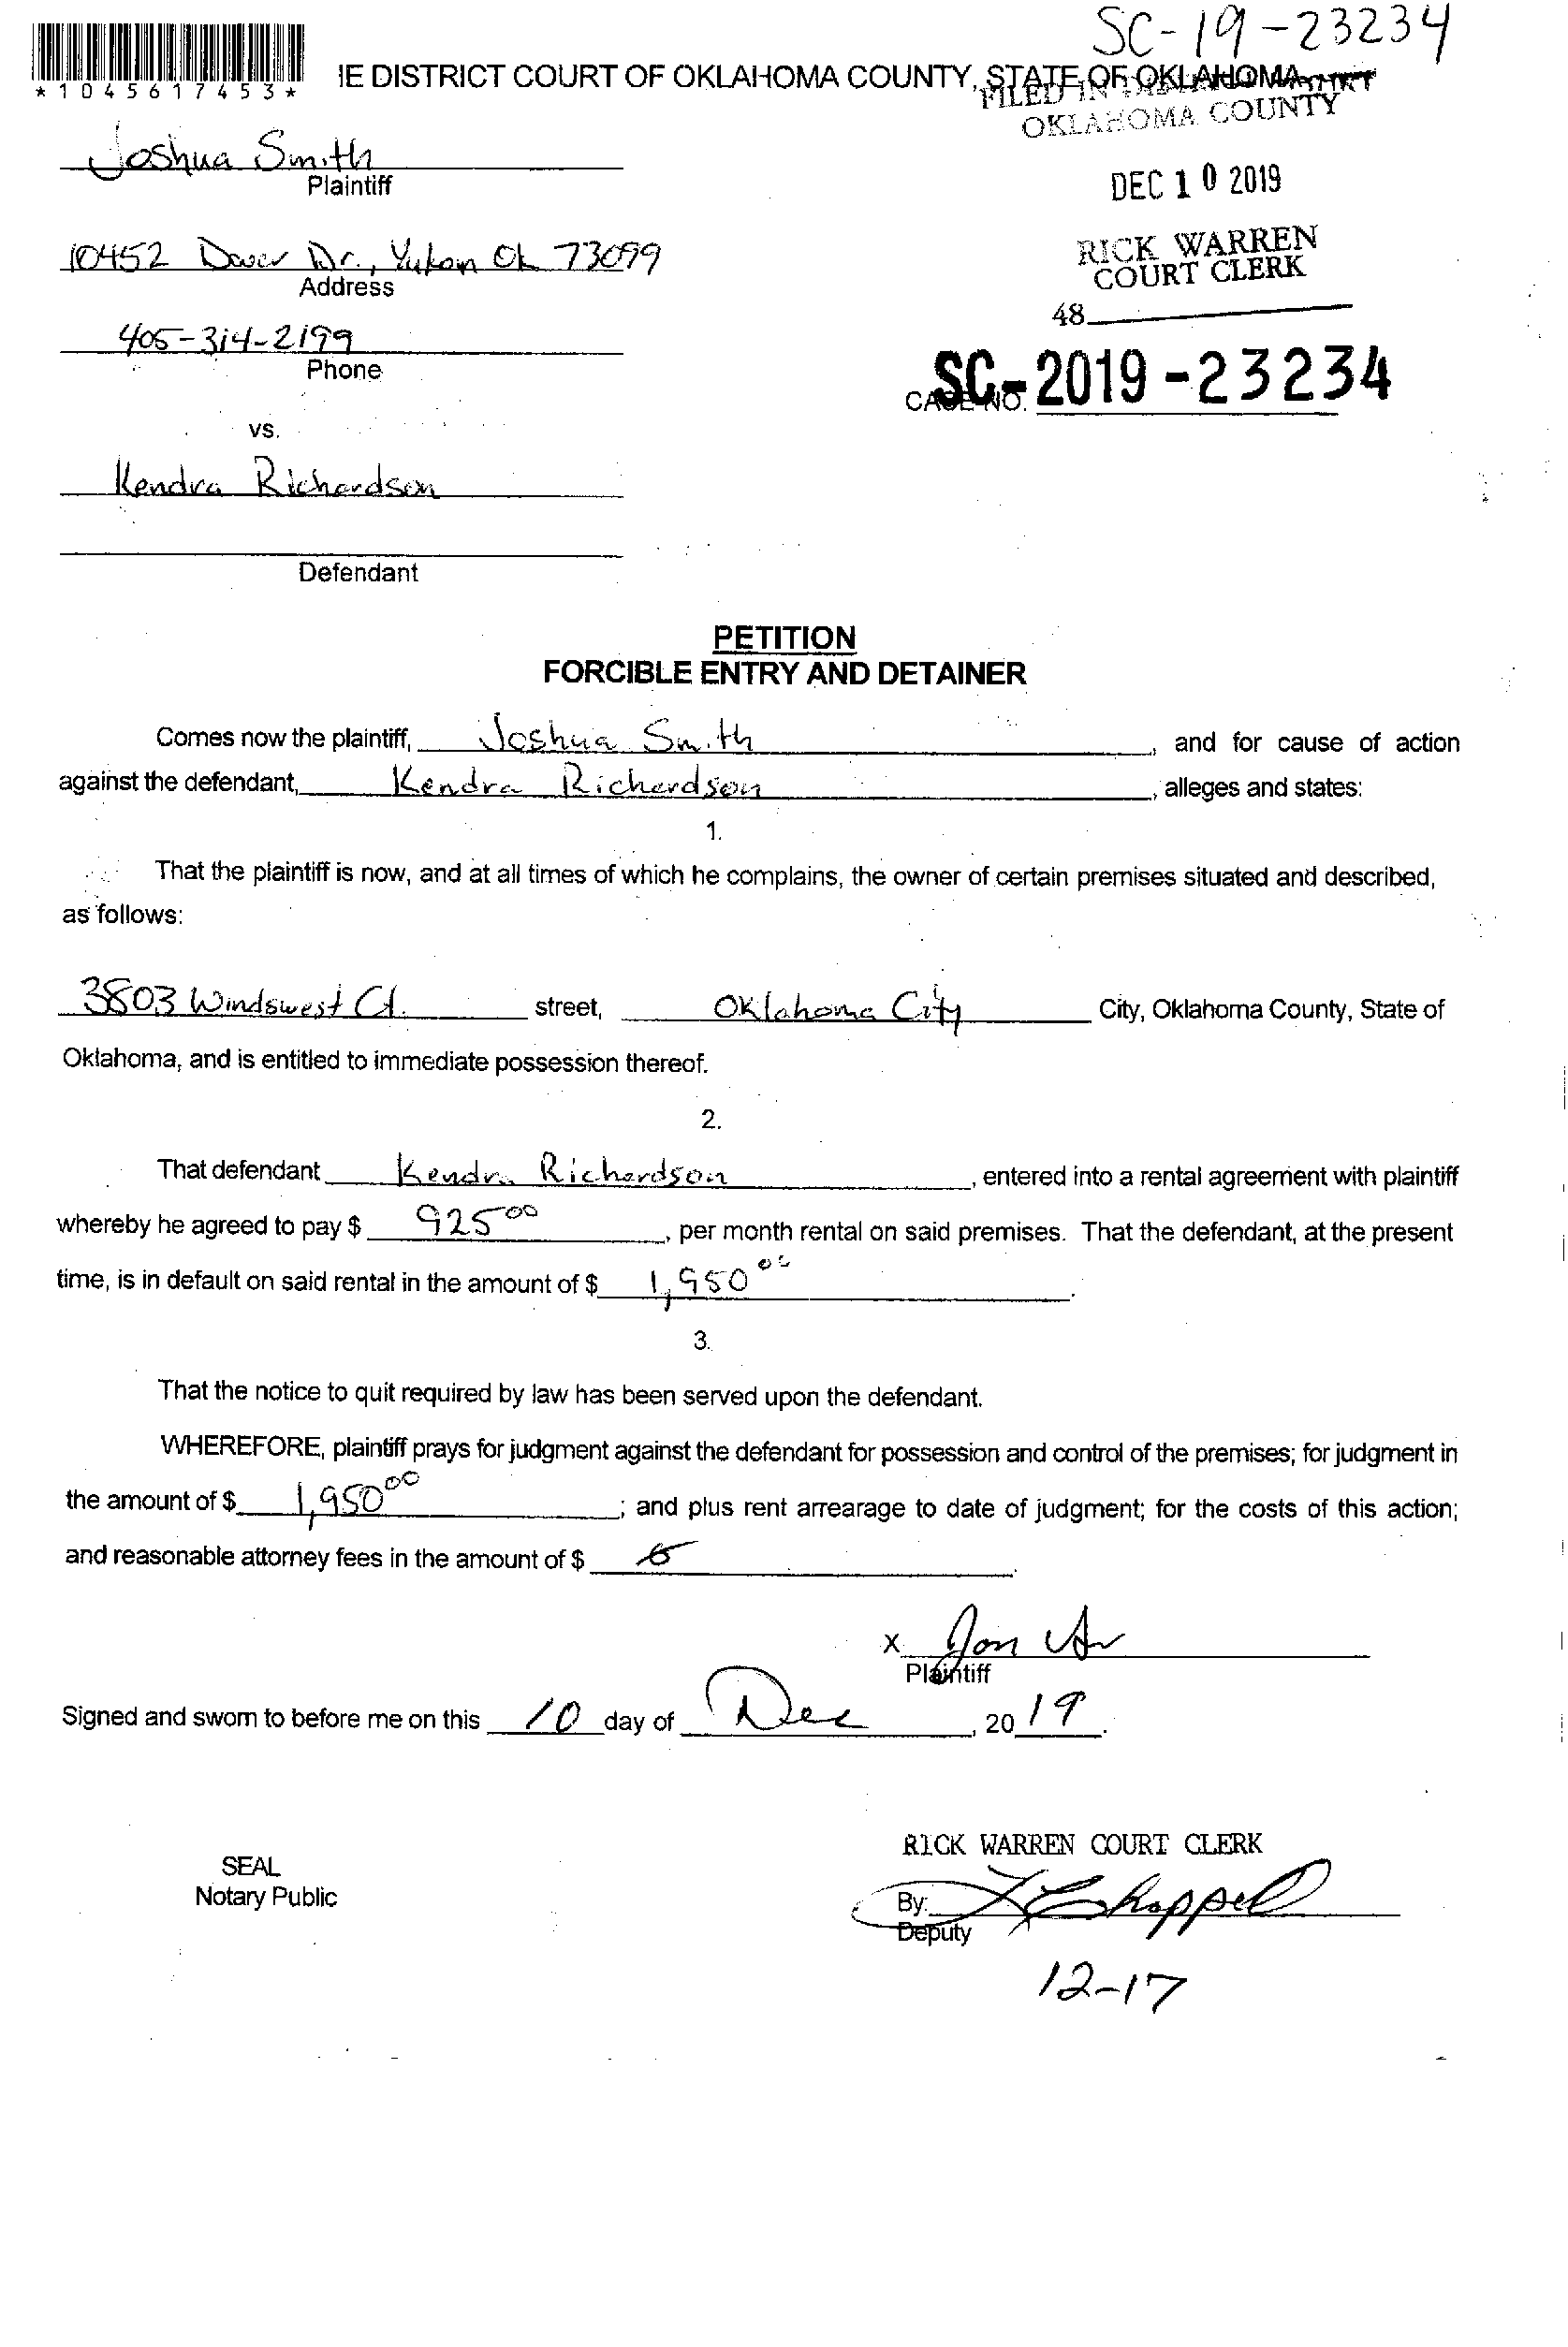 SC-19-23234
*1045617453*
IE DISTRICT COURT OF OKLAHOMA COUNTY, STATE OF OKLAHOMA
FILED IN
OKLAHOMA COUNTY
Joshua Smith
Plaintiff
DEC 10 2019
10452 Dover Dr., Yukon Ok 73099
Address
RICK WARREN
COURT CLERK
405-314-2199
Phone
48
SC-2019-23234
CASE NO.
vs.
Kendra Richardson
Defendant
PETITION
FORCIBLE ENTRY AND DETAINER
Comes now the plaintiff, Joshua Smith, and for cause of action
against the defendant, Kendra Richardson, alleges and states:
1.
That the plaintiff is now, and at all times of which he complains, the owner of certain premises situated and described,
as follows:
3803 Windswest Ct. street, Oklahoma City City, Oklahoma County, State of
Oklahoma, and is entitled to immediate possession thereof.
2.
That defendant Kendra Richardson, entered into a rental agreement with plaintiff
whereby he agreed to pay $ 925 00, per month rental on said premises. That the defendant, at the present
time, is in default on said rental in the amount of $ 1,950 00.
3.
That the notice to quit required by law has been served upon the defendant.
WHEREFORE, plaintiff prays for judgment against the defendant for possession and control of the premises; for judgment in
the amount of $ 1,950 00; and plus rent arrearage to date of judgment; for the costs of this action;
and reasonable attorney fees in the amount of $
X
Plaintiff
Signed and sworn to before me on this 10 day of Dec, 20 19.
RICK WARREN COURT CLERK
SEAL
Notary Public
By:
Deputy
12-17